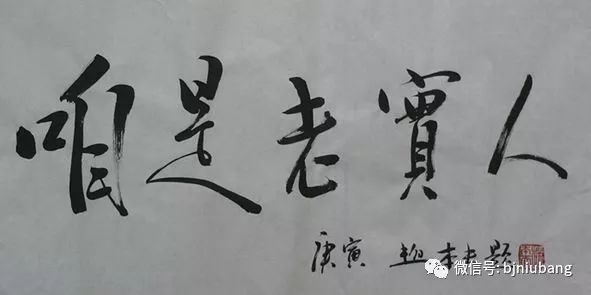 咱是老實人
庚寅 趙本夫題
微信号: bjniubang